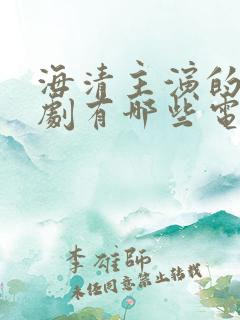 海清主演的
劇有哪些電
李雄師
未经同意禁止转载